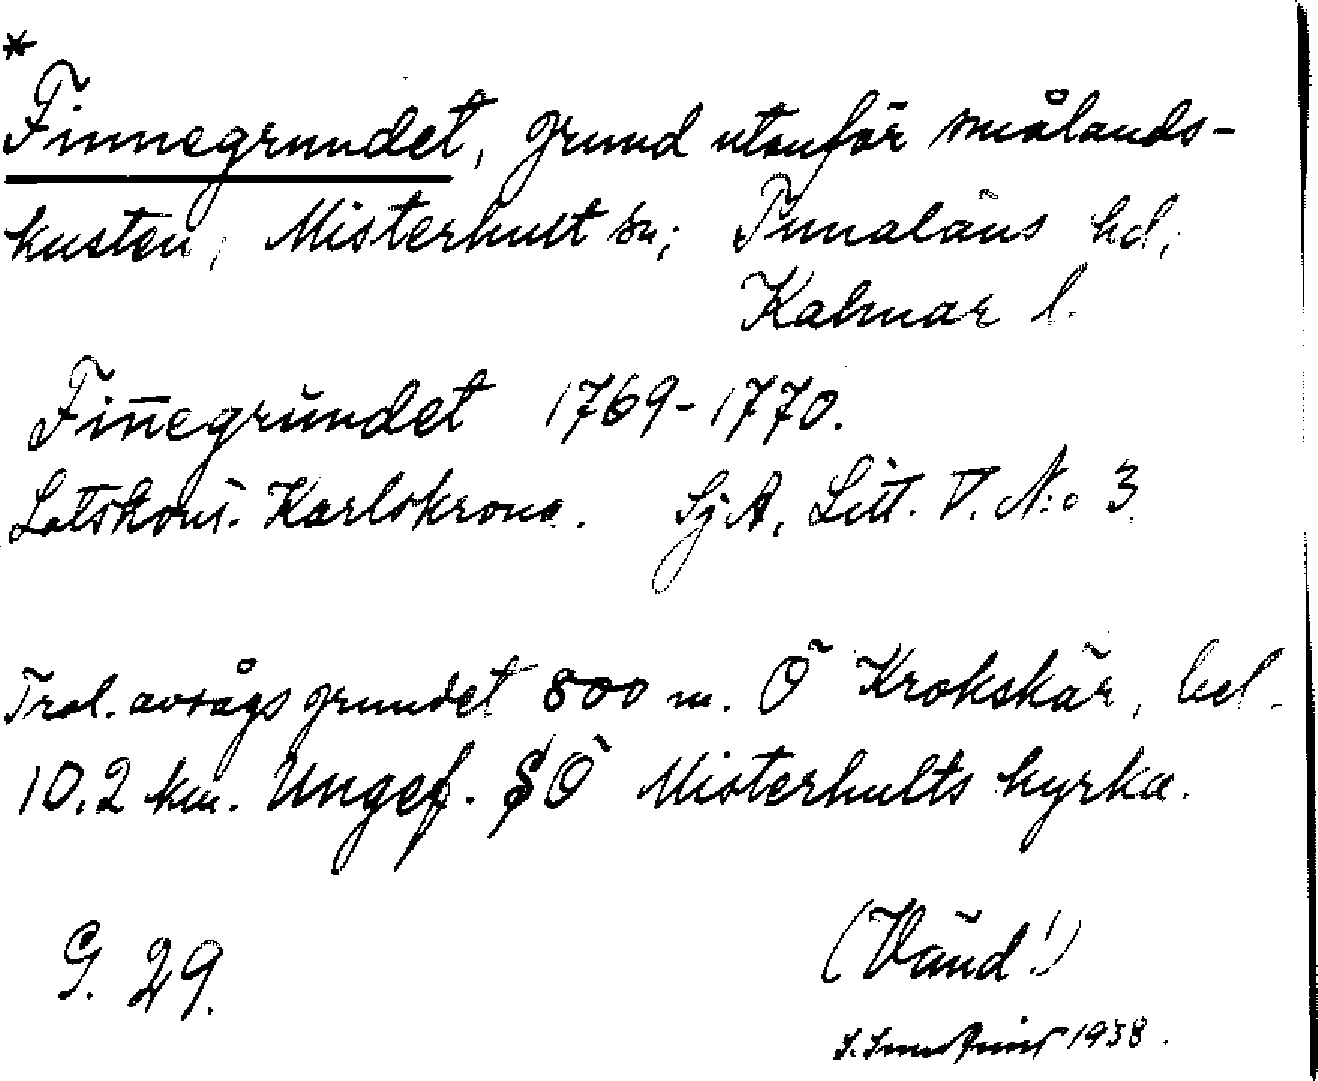 *
Finnegrundet, grund utenför smålands-
kusten, Misterhult sn; Tunaläns hd,
Kalmar l.
Fin̄egrŭndet 1769-1770.
Lotskont. Karlskrona. SjA, Litt. V. N:o 3
Trol. avsågs grundet 800 m. Ö Krokskär, bel.
10.2 km. Ungef. SÖ Misterhults kyrka.
G. 29.
(Vänd!)
1938.